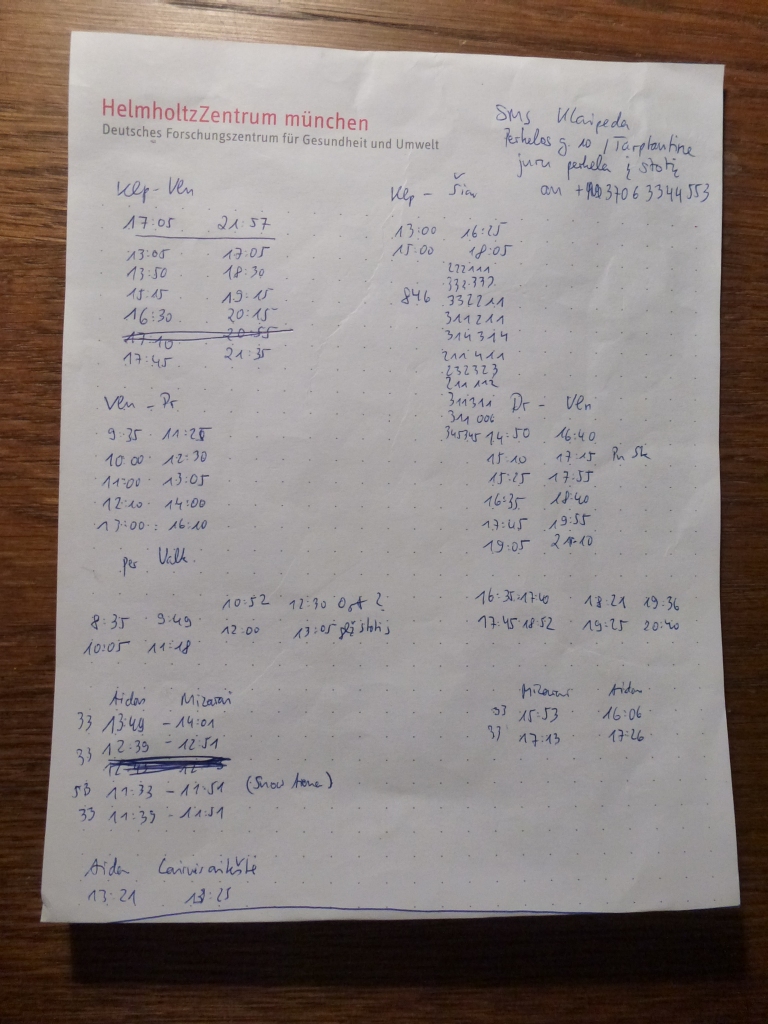 HelmholtzZentrum münchen
Deutsches Forschungszentrum für Gesundheit und Umwelt
SMS Klaipeda
g. 10 / Tarptautine
juru perkela į stotį
an + 3706 3344 553
Klp - Vln
17:05 21:57
13:05 17:05
13:50 18:30
15:15 19:15
16:30 20:15
17:10 20:55
17:45 21:35
Klp - Šiau
13:00 16:25
15:00 18:05
222111
332332
846 332211
311211
314314
211411
232323
211112
311311
311006
345345
Vln - Dr
9:35 11:25
10:00 12:30
11:00 13:05
12:10 14:00
13:00 : 16:10
per Valk
Dr - Vln
14:50 16:40
15:10 17:15
15:25 17:55
16:35 18:40
17:45 19:55
19:05 21:10
8:35 9:49
10:05 11:18
10:52 12:30
12:00 13:05
16:35 17:40 18:21 19:36
17:45 18:52 19:25 20:40
Aidas Mizarai
33 13:49 - 14:01
33 12:39 - 12:51
53 11:33 - 11:51 (Snow )
33 11:39 - 11:51
Mizarai Aidas
53 15:53 16:06
33 17:13 17:26
Aidas
13:21 13:25